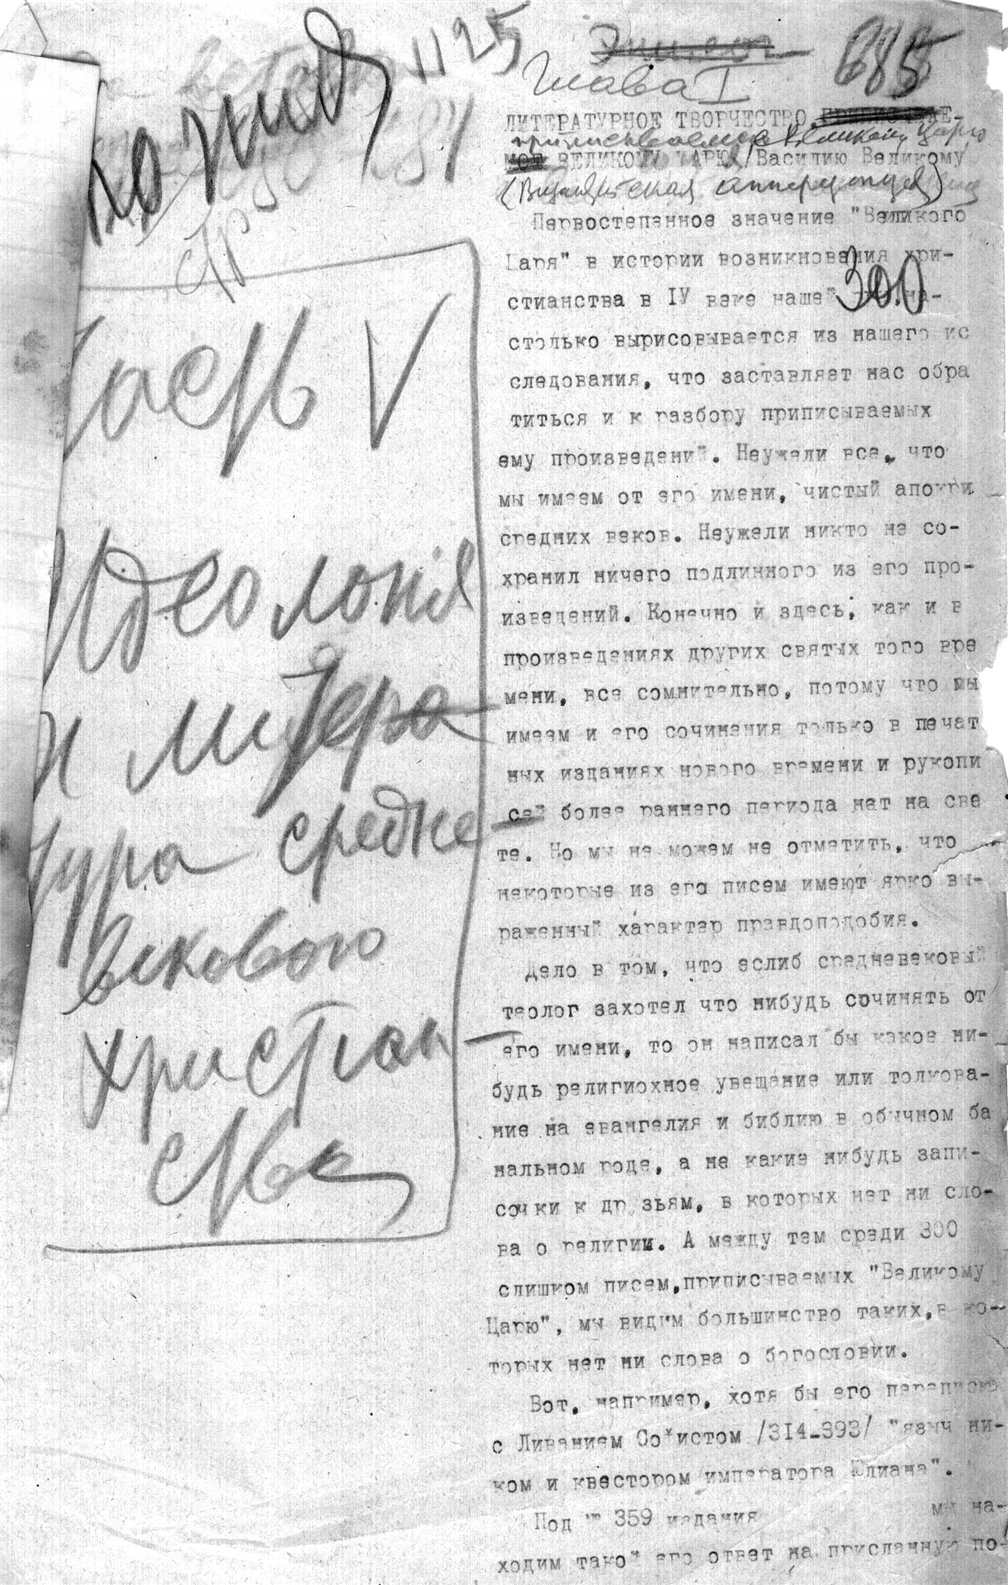 1125
685
Глава I
ЛИТЕРАТУРНОЕ ТВОРЧЕСТВО
приписываемое Великому Царю
ВЕЛИКОМУ ЦАРЮ/Василию Великому
(Византийская апперцепция)
Первостепенное значение "Великого
Царя" в истории возникновения хри-
300
стианства в IУ веке нашей на-
столько вырисовывается из нашего ис
следования, что заставляет нас обра
титься и к разбору приписываемых
ему произведений. Неужели все, что
мы имеем от его имени, чистый апокри
средних веков. Неужели никто не со-
хранил ничего подлинного из его про-
изведений. Конечно и здесь, как и в
произведениях других святых того вре
мени, все сомнительно, потому что мы
имеем и его сочинения только в печат
ных изданиях нового времени и рукопи
сей более раннего периода нет на све
те. Но мы не можем не отметить, что
некоторые из его писем имеют ярко вы-
раженный характер правдоподобия.
Дело в том, что еслиб средневековый
теолог захотел что нибудь сочинять от
его имени, то он написал бы какое ни-
будь религиохное увещание или толкова-
ние на евангелия и библию в обычном ба
нальном роде, а не какие нибудь запи-
сочки к друзьям, в которых нет ни сло-
ва о религии. А между тем среди 300
слишком писем,приписываемых "Великому
Царю", мы видим большинство таких,в ко-
торых нет ни слова о богословии.
Вот, например, хотя бы его переписка
с Ливанием Софистом /314-393/ "языч ни-
ком и квестором императора Юлиана".
Под № 359 издания мы на-
ходим такой его ответ на присланную по-
Часть V
Идеология
и литера
тура средне-
векового
христиан-
ства